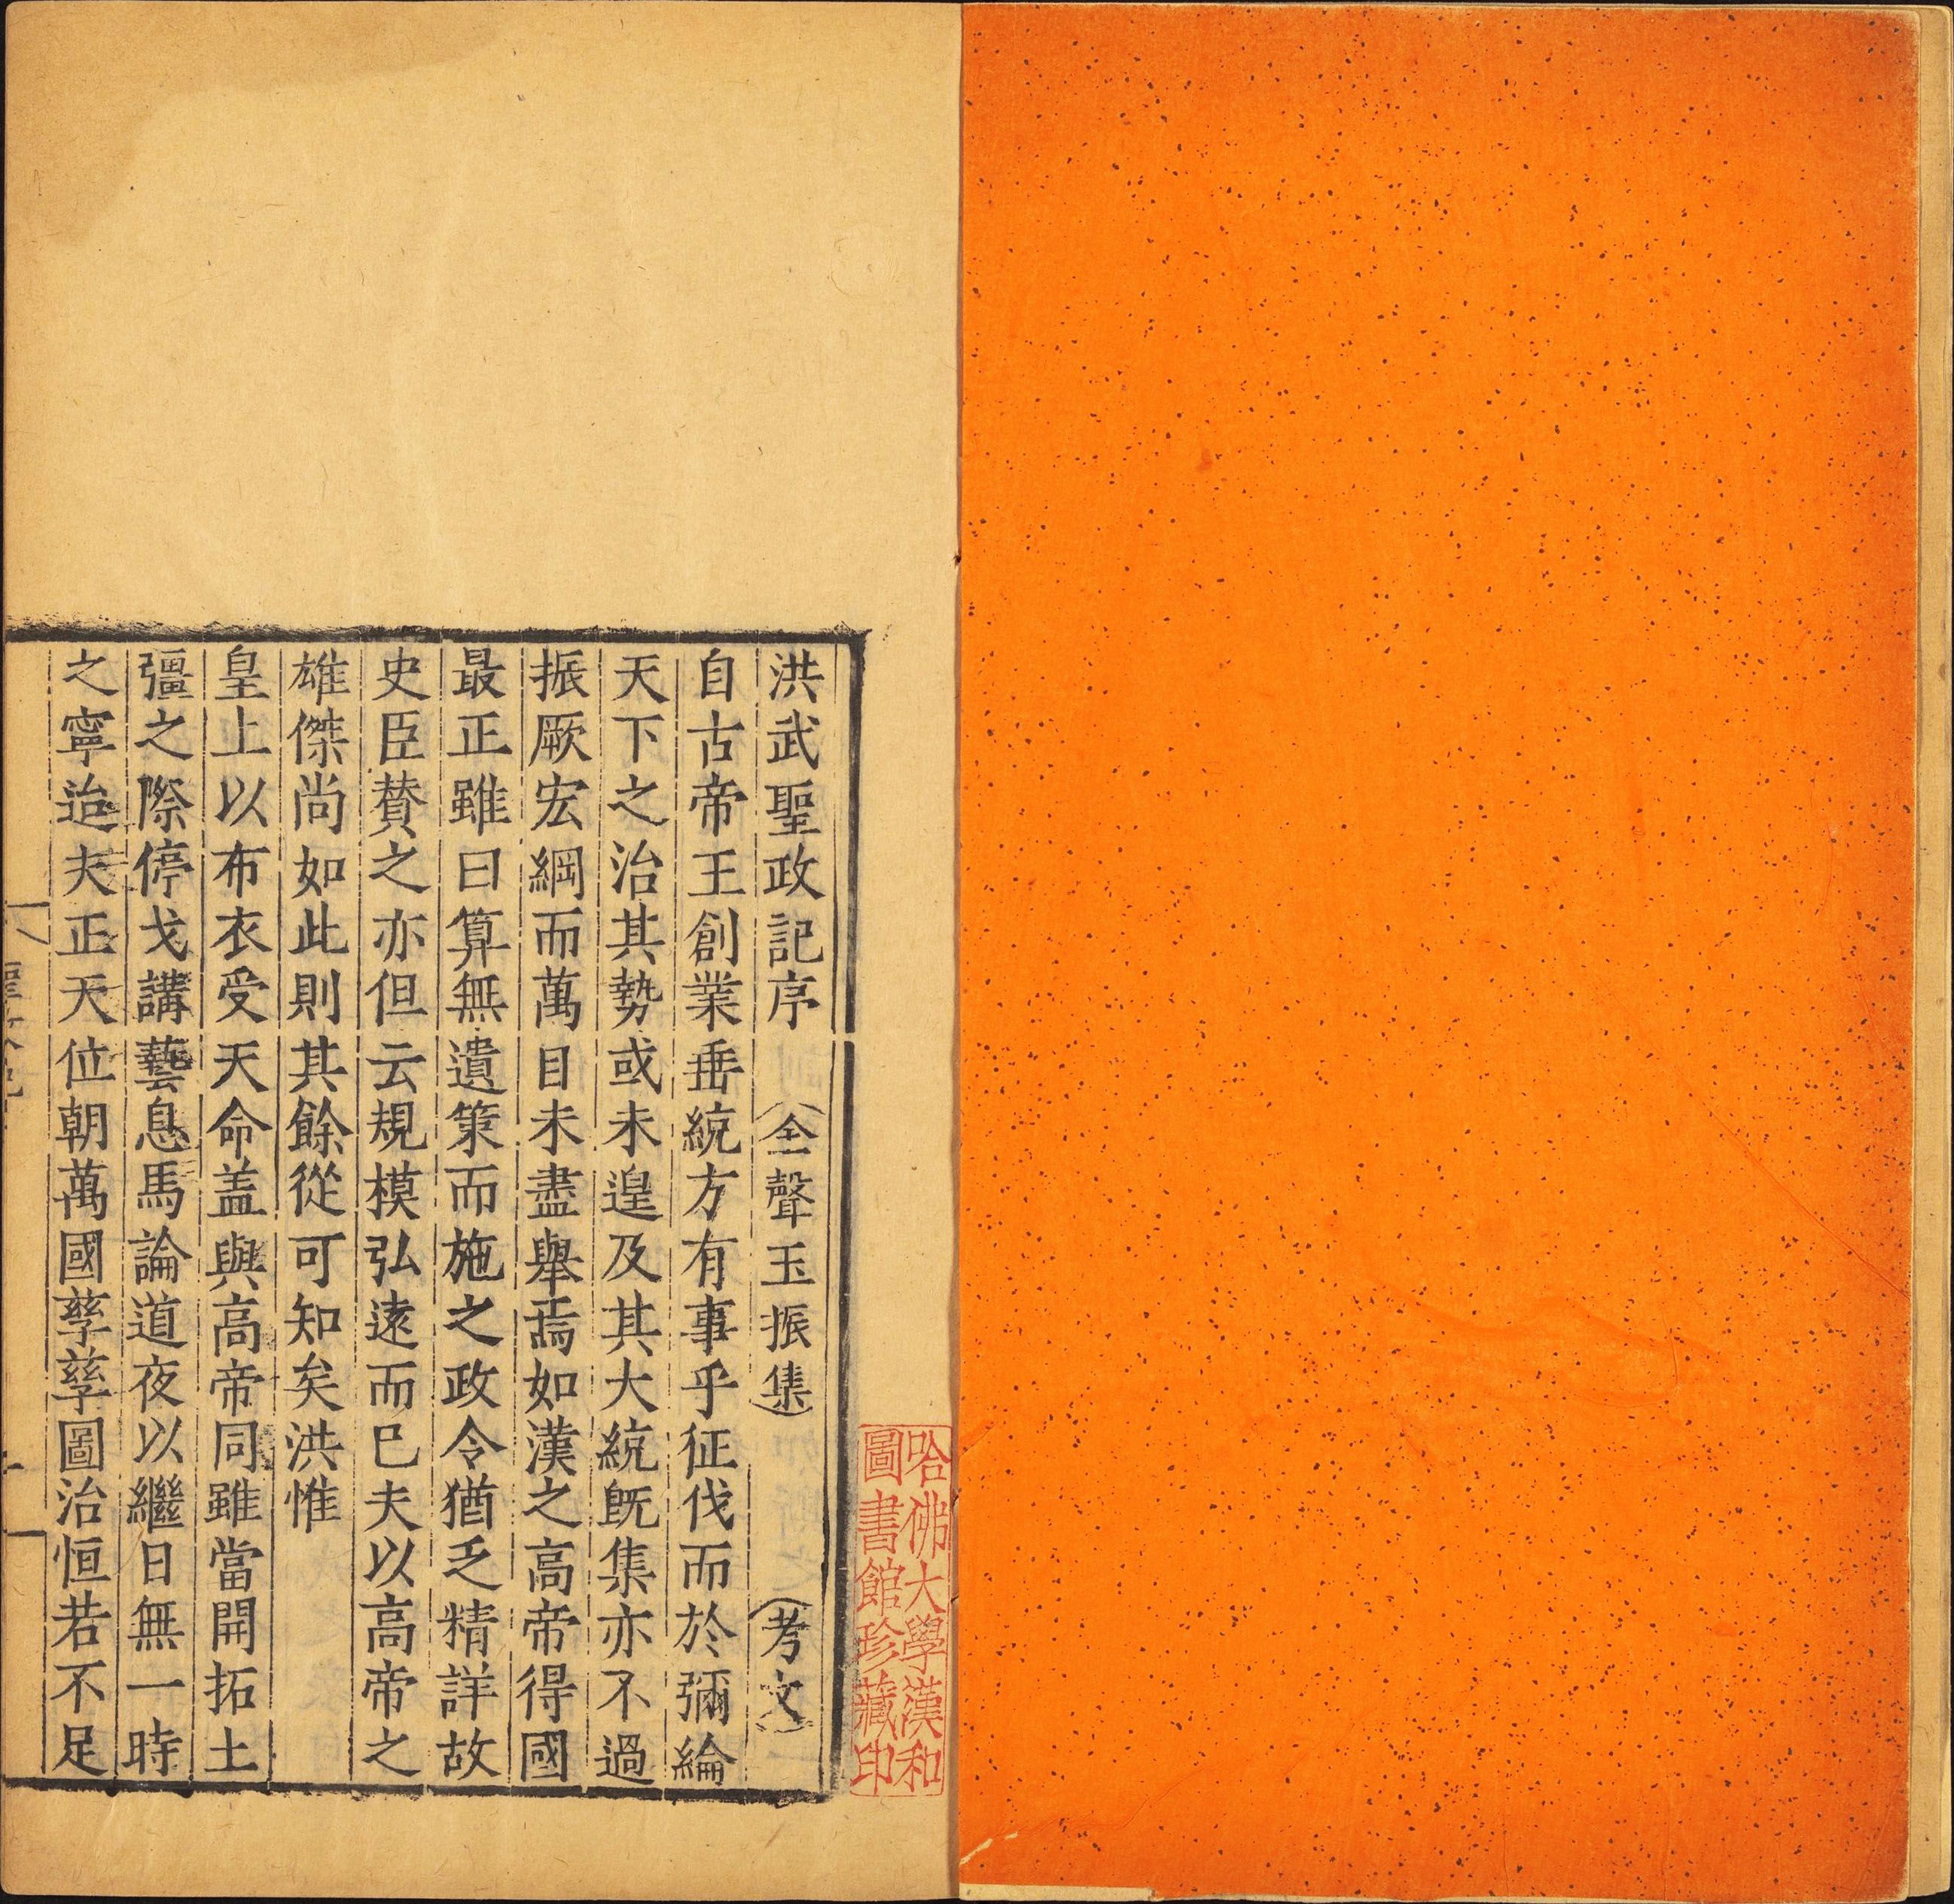 洪武聖政記序 (金聲玉振集) (考文)
自古帝王創業垂統方有事乎征伐而於彌綸
天下之治其勢或未遑及其大統旣集亦不過
振厥宏綱而萬目未盡舉焉如漢之高帝得國
最正雖曰算無遺策而施之政令猶乏精詳故
史臣贊之亦但云規模弘遠而已夫以高帝之
雄傑尚如此則其餘從可知矣洪惟
皇上以布衣受天命盖與高帝同雖當開拓土
彊之際停戈講藝息馬論道夜以繼日無一時
之寧迨夫正天位朝萬國孳孳圖治恒若不足
哈佛大學漢和
圖書館珍藏印